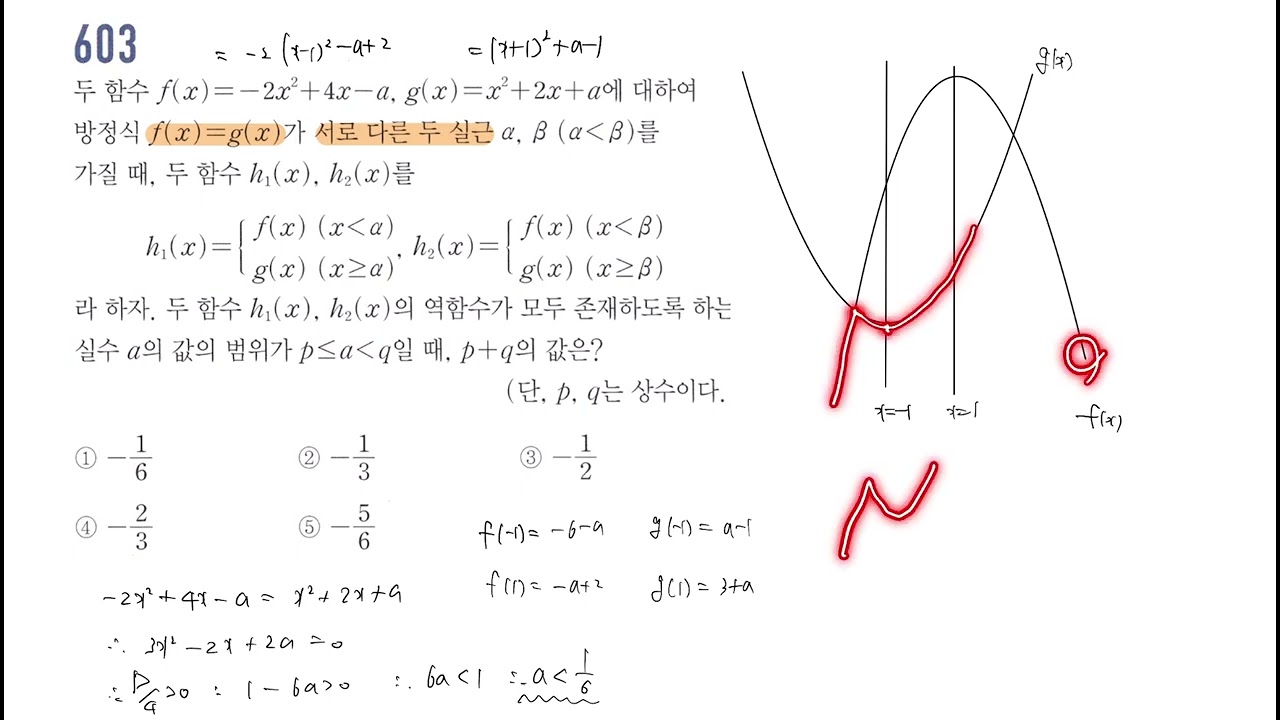 603
= -2(x-1)²-a+2
= (x+1)²+a-1
두 함수 f(x)=-2x²+4x-a, g(x)=x²+2x+a에 대하여
방정식 f(x)=g(x)가 서로 다른 두 실근 α, β (α<β)를
가질 때, 두 함수 h₁(x), h₂(x)를
h₁(x)={ f(x) (x<α), g(x) (x≥α), h₂(x)={ f(x) (x<β), g(x) (x≥β)
라 하자. 두 함수 h₁(x), h₂(x)의 역함수가 모두 존재하도록 하는
실수 a의 값의 범위가 p≤a<q일 때, p+q의 값은?
(단, p, q는 상수이다.
① -1/6 ② -1/3 ③ -1/2
④ -2/3 ⑤ -5/6
f(-1)= -6-a g(-1)= a-1
f(1)= -a+2 g(1)= 3+a
-2x²+4x-a = x²+2x+a
∴ 3x²-2x+2a=0
∴ D/4>0 : 1-6a>0 ∴ 6a<1 ∴ a<1/6
g(x)
x=-1 x=1 f(x)